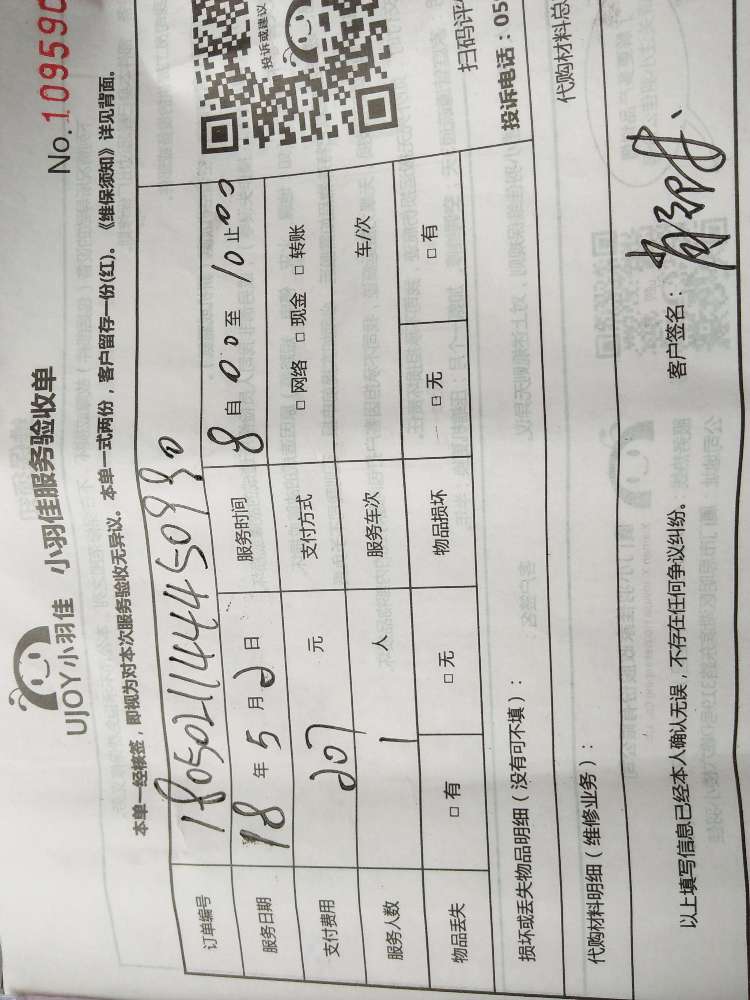 UJOY小羽佳 小羽佳服务验收单
No.10959
本单一经核签，即视为对本次服务验收无异议。本单一式两份，客户留存一份(红)。《维保须知》详见背面。
订单编号
服务日期 18年5月2日 服务时间 8自00至10止00
支付费用 207元 支付方式 □网络 □现金 □转账
服务人数 1人 服务车次 车/次
物品丢失 □有 □无 物品损坏 □无 □有
投诉或建议
扫码评
投诉电话：05
损坏或丢失物品明细（没有可不填）：
代购材料明细（维修业务）：
代购材料总
以上填写信息已经本人确认无误，不存在任何争议纠纷。
客户签名：